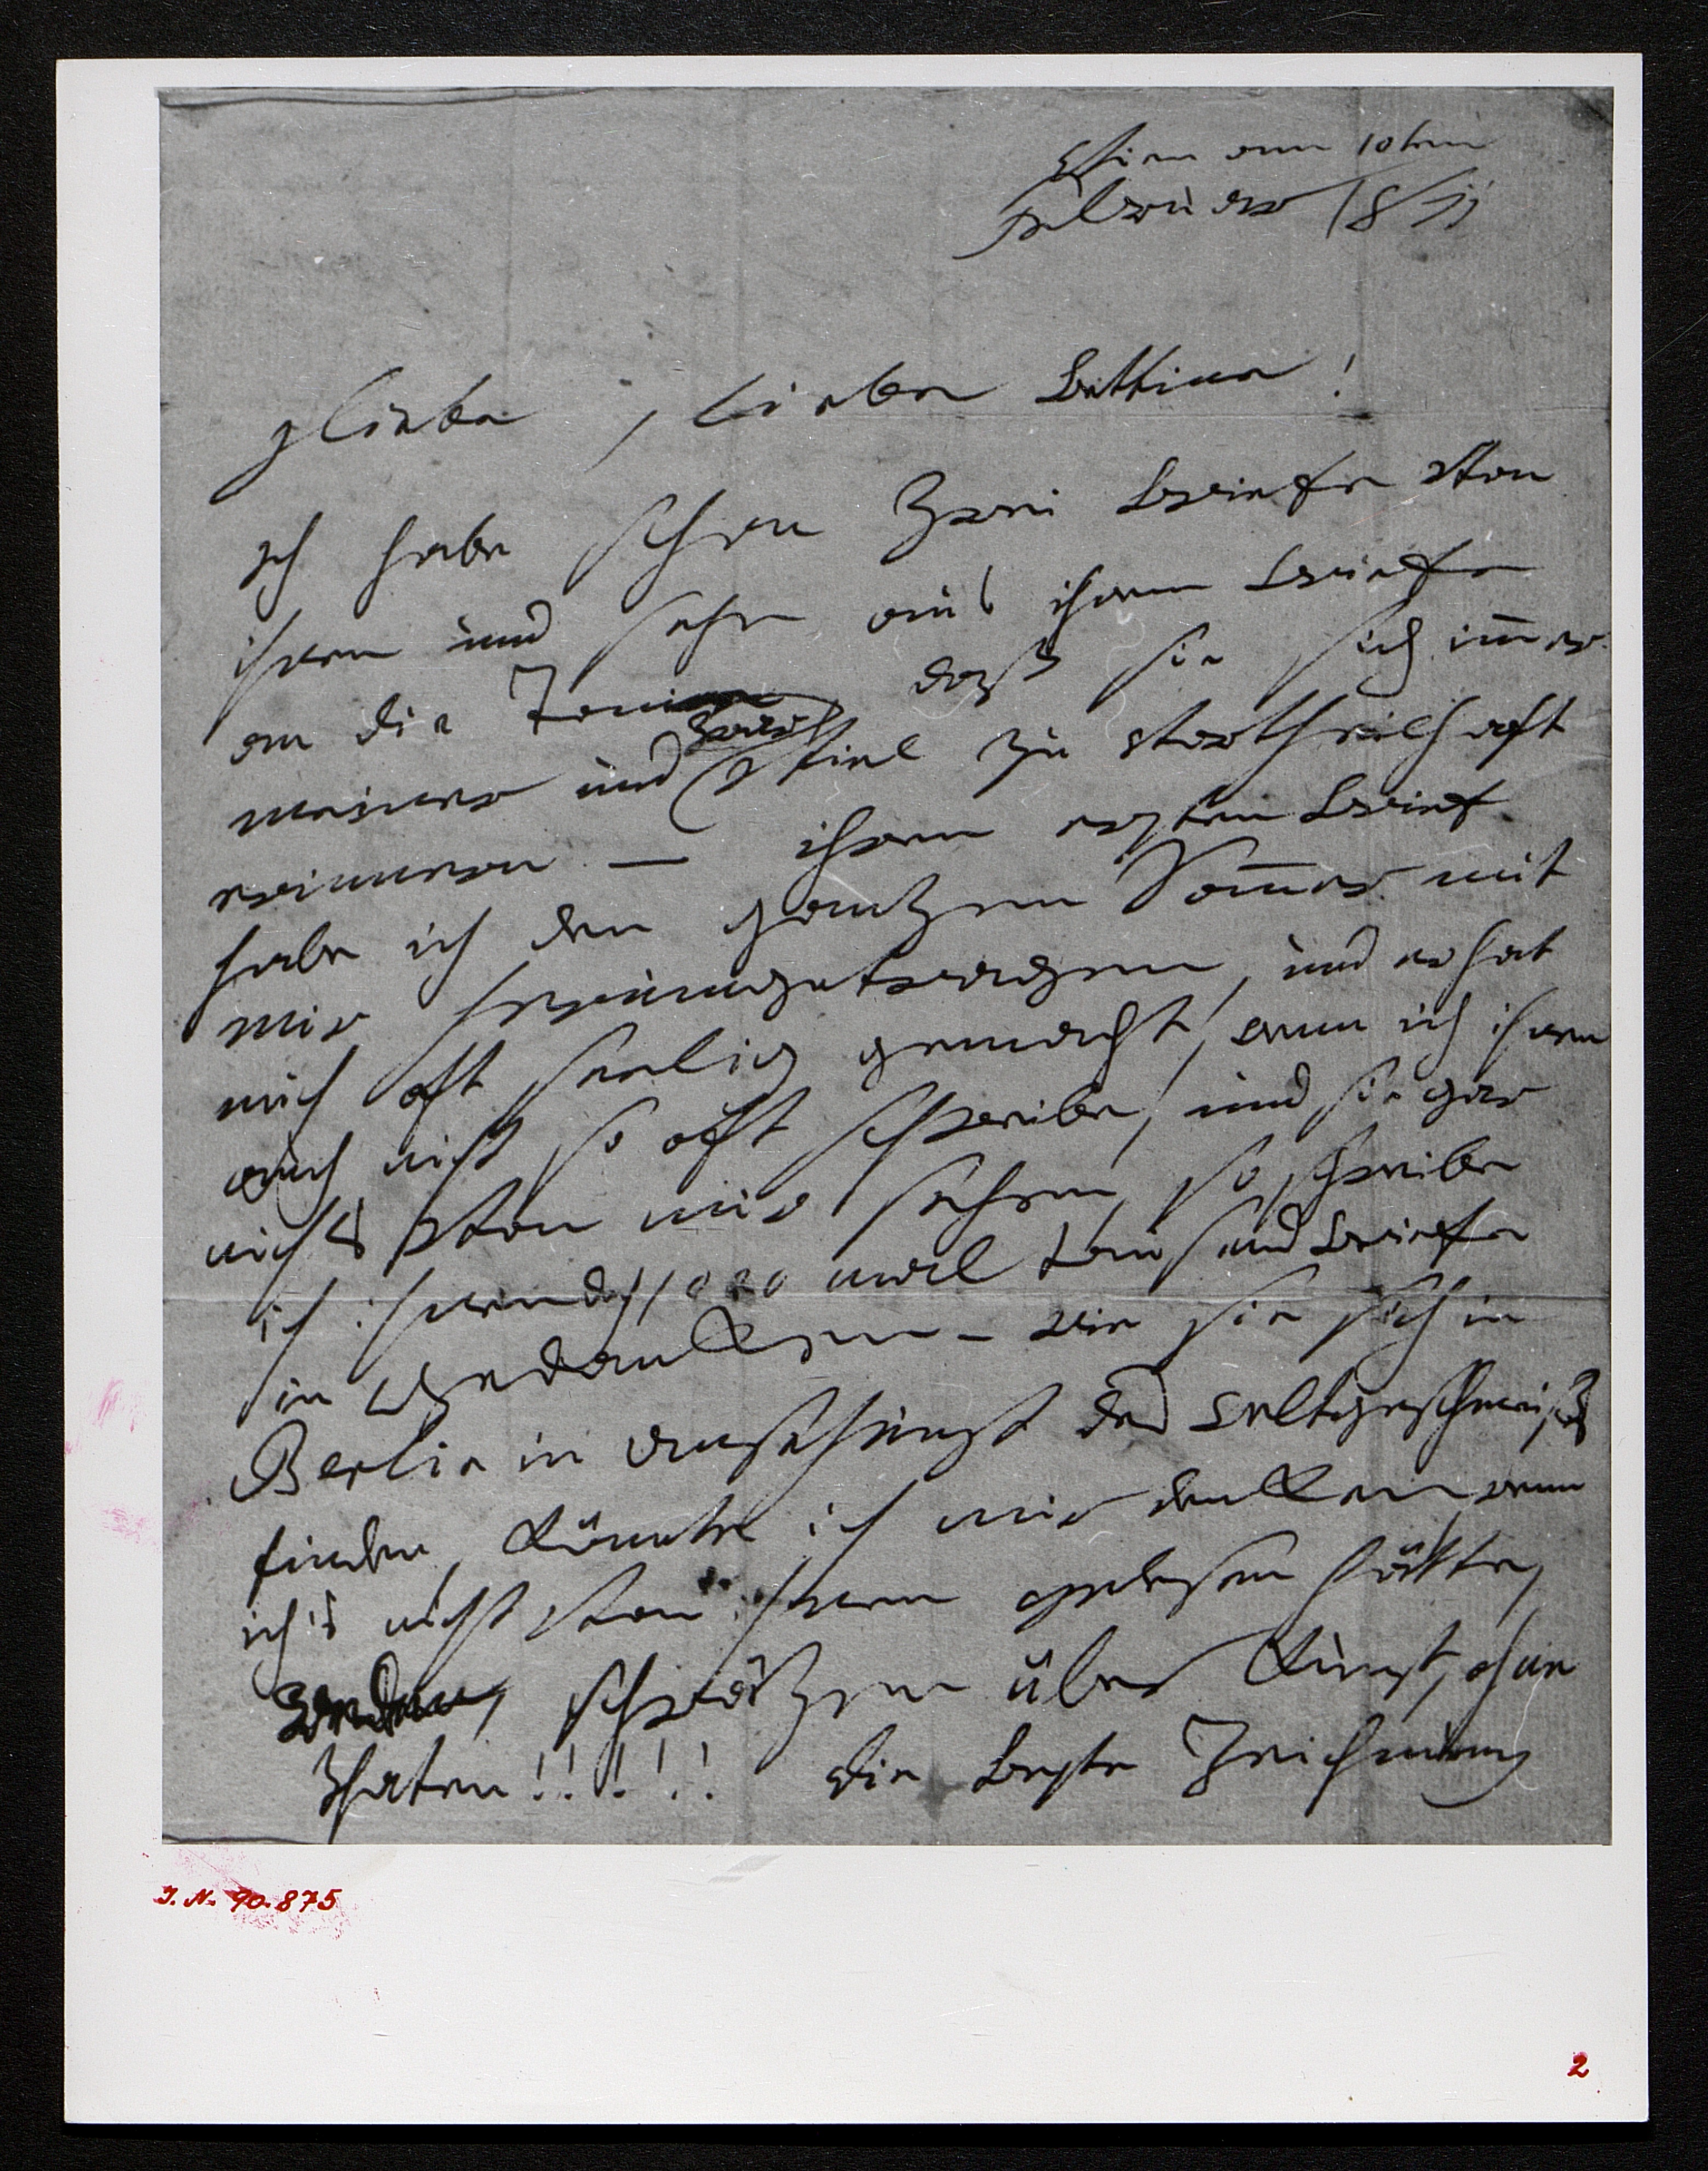 Wien am 10ten
Februar 1811
Geliebte, liebe Bettine!
Ich habe schon zwei Briefe von
ihnen und sehe aus ihrem Briefe
an die Tonie daß sie sich im̅er
meiner und zwar
viel zu vortheilhaft
erinnern — ihren ersten Brief
habe ich den ganzen Som̅er mit
mir herumgetragen, und er hat
mich oft seelig gemacht, wenn ich ihnen
auch nicht so oft schreibe, und sie gar
nichts von mir sehen, so schreibe
ich ihnen doch 1000 mal tausend Briefe
in Gedanken – wie sie sich in
Berlin in ansehung des Weltgeschmeißes
finden, könnte ich mir denken, wenn
ich's nicht von ihnen gelesen hätte,
schwäzen über Kunst, ohne
Thaten!!!!! die beste Zeichnung
I. N. 90.875
2